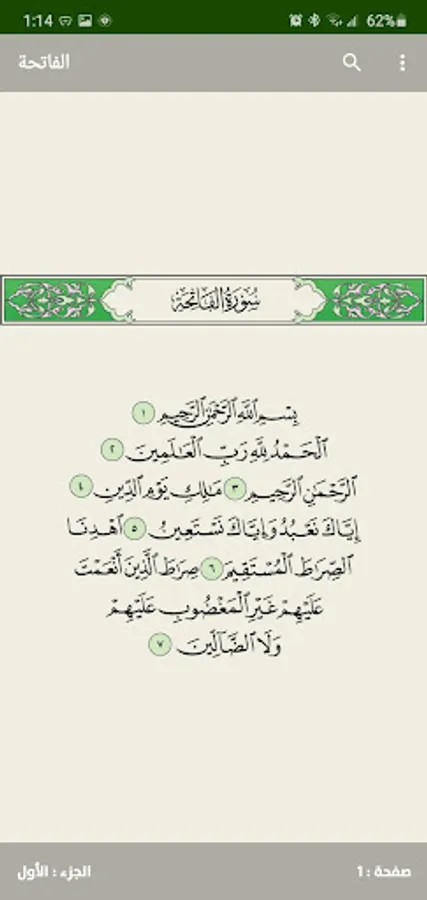 1:14 62%
الفاتحة
سُورَةُ الفَاتِحَةِ
بِسْمِ ٱللَّهِ ٱلرَّحْمَٰنِ ٱلرَّحِيمِ ١
ٱلْحَمْدُ لِلَّهِ رَبِّ ٱلْعَٰلَمِينَ ٢
ٱلرَّحْمَٰنِ ٱلرَّحِيمِ ٣ مَٰلِكِ يَوْمِ ٱلدِّينِ ٤
إِيَّاكَ نَعْبُدُ وَإِيَّاكَ نَسْتَعِينُ ٥ ٱهْدِنَا
ٱلصِّرَٰطَ ٱلْمُسْتَقِيمَ ٦ صِرَٰطَ ٱلَّذِينَ أَنْعَمْتَ
عَلَيْهِمْ غَيْرِ ٱلْمَغْضُوبِ عَلَيْهِمْ
وَلَا ٱلضَّآلِّينَ ٧
صفحة : 1 الجزء : الأول